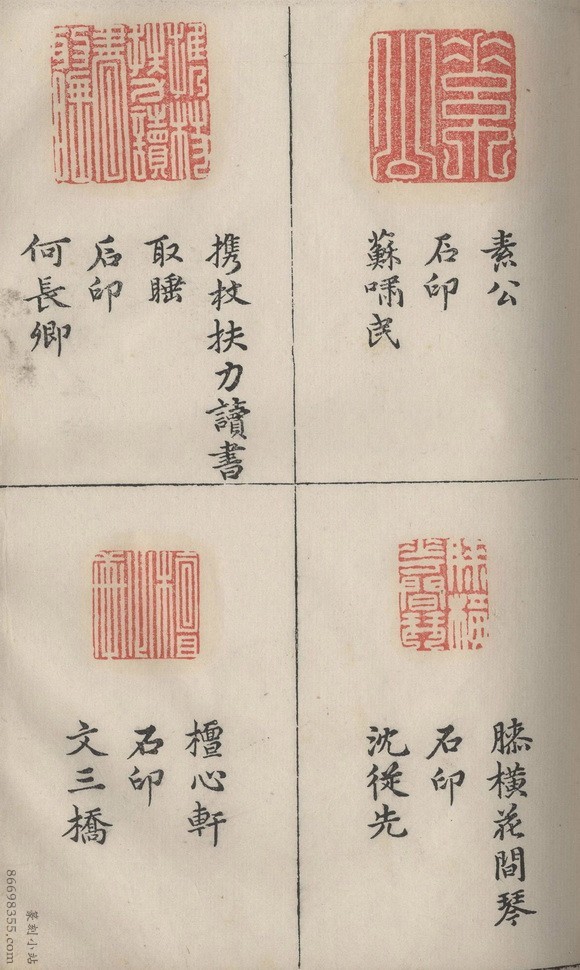 素公
石印
蘇嘯民
携杖扶力讀書
取睡
石印
何長卿
膝橫花間琴
石印
沈從先
檀心軒
石印
文三橋
篆刻小站
86698355.com